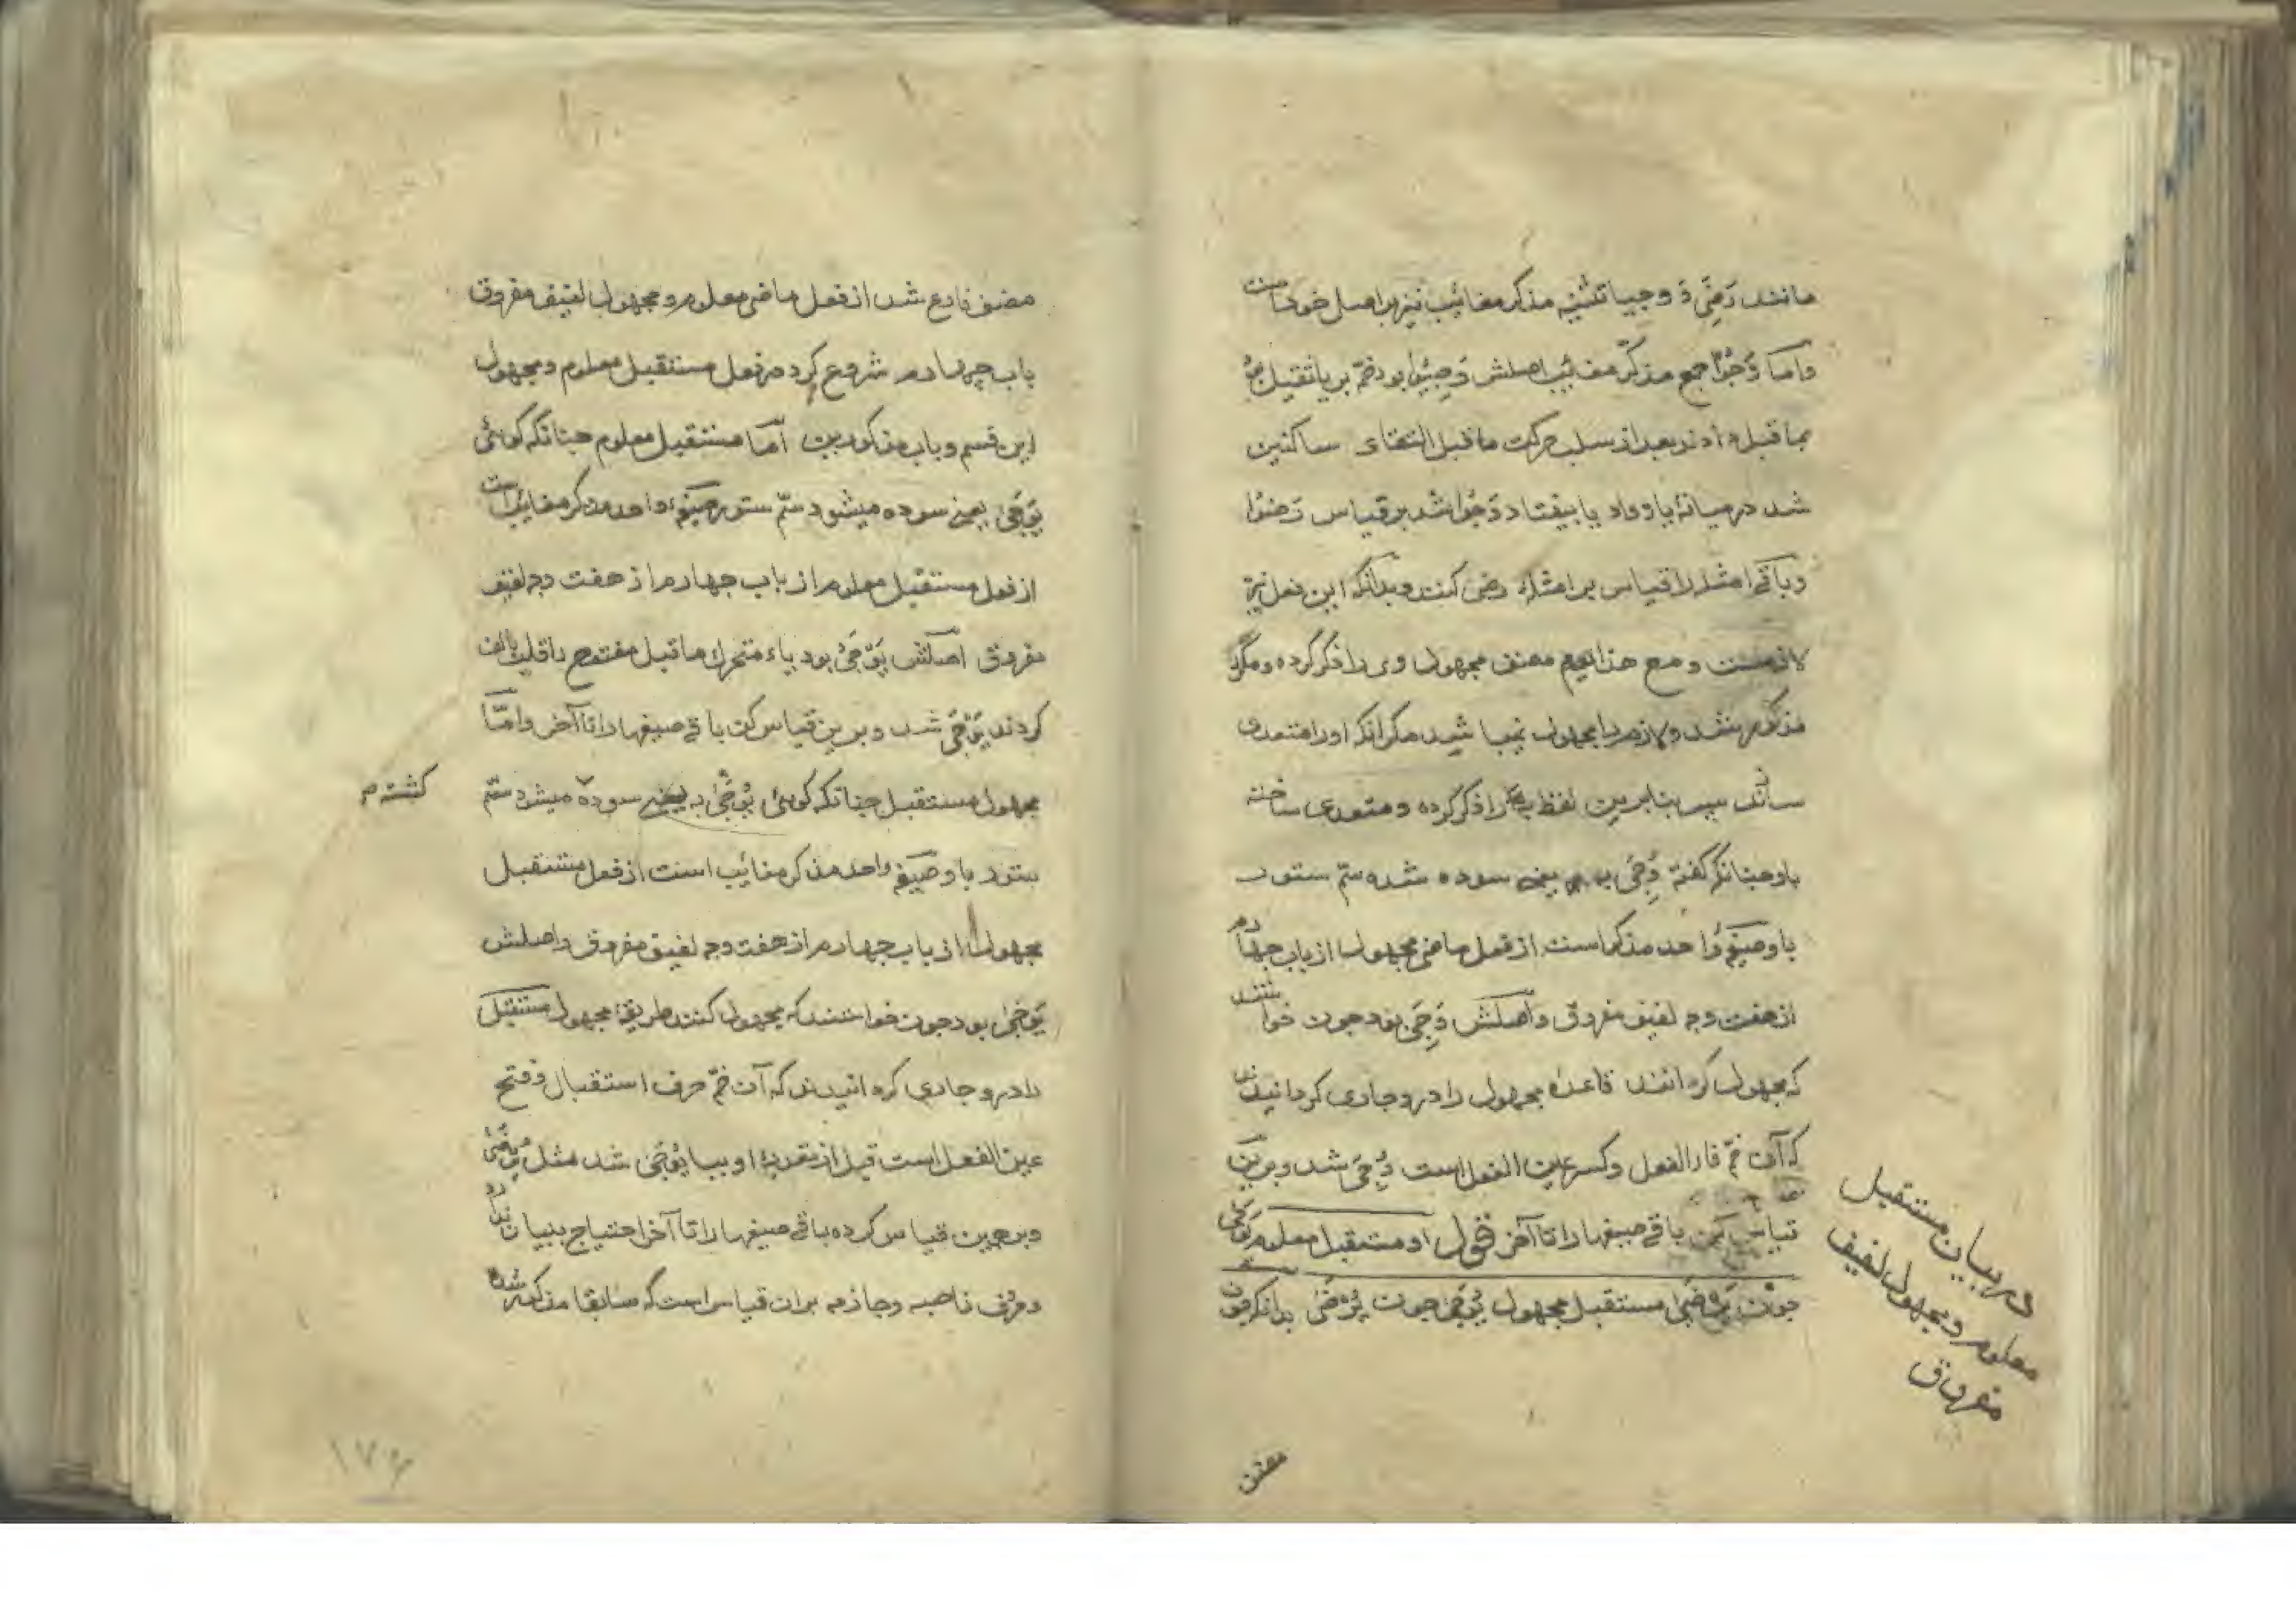 مانند رَضِیَ وَ وجیا تثنیه مذکر مغائب نیز بر اصل خود است
وامّا وَجُوْا جمع مذکّر مغائب اصلش وَجِیُوا بود ضمّ بر یا ثقیل بود
بما قبل دادند بعد از سلب حرکت ما قبل التقای ساکنین
شد در میانهٔ یا و واو یا بیفتاد وَجُوا شد بر قیاس رَضُوْا
و باقی امثله را قیاس بر امثلهٔ رضی کنند و بدانکه این فعل نیز
لازمست و مع هذا مصنف مجهول وی را ذکر کرده و مکرّر
مذکور شد و لازم را مجهول نمیباشد مکر انکه او را متعدی
سازند سپس بنابرین لفظ به را ذکر کرده و متعدی ساخته
باو چنانکه گفته وُجِیَ به یعنی سوده شده سمّ ستور
باو صیغهٔ واحد مذکر است از فعل ماضی مجهول از باب چهارم
از هفت وجه لفیف مفروق و اصلش وَجِیَ بود چون خواستند
که مجهول کردانند قاعدهٔ مجهول را درو جاری کردانیدند
که آن ضمّ فاء الفعل و کسر عین الفعل است وُجِیَ شد و برین
قیاس کن باقی صیغها را تا آخر قول او مستقبل معلوم یَوْجَیٰ
چون یَرْضَیٰ مستقبل مجهول یُوْجَیٰ چون یُرْضَیٰ بدانکه چون
در بیان مستقبل
معلوم و مجهول لفیف
مفروق
مصنف
مصنف فارغ شد از فعل ماضی معلوم و مجهول لفیف مفروق
باب چهارم شروع کرد در فعل مستقبل معلوم و مجهول
این قسم و باب مذکورین امّا مستقبل معلوم چنانکه کوئی
یَوْجَیٰ یعنی سوده میشود سمّ ستور صیغهٔ واحد مذکر مغائب است
از فعل مستقبل معلوم از باب چهارم از هفت وجه لفیف
مفروق اصلش یَوْجَیُ بود یاء متحرک ما قبل مفتوح را قلب بالف
کردند یَوْجَیٰ شد و برین قیاس کن باقی صیغها را تا آخر و امّا
مجهول مستقبل چنانکه کوئی یُوْجَیٰ به یعنی سوده میشود سمّ
کشته م
ستور باو صیغهٔ واحد مذکر مغائب است از فعل مستقبل
مجهول از باب چهارم از هفت وجه لفیف مفروق و اصلش
یَوْجَیٰ بود چون خواستند که مجهول کنند طریقهٔ مجهول مستقبل
را درو جاری کردانیدند که آن ضمّ حرف استقبال و فتح
عین الفعل است قبل از تعدیهٔ او ببا یُوْجَیٰ شد مثل یُرْضَیٰ
و برهمین قیاس کرده باقی صیغها را تا آخر احتیاج ببیان ندارد
و حروف ناصبه و جازمه بران قیاس است که سابقا مذکور شد
۱۷۶